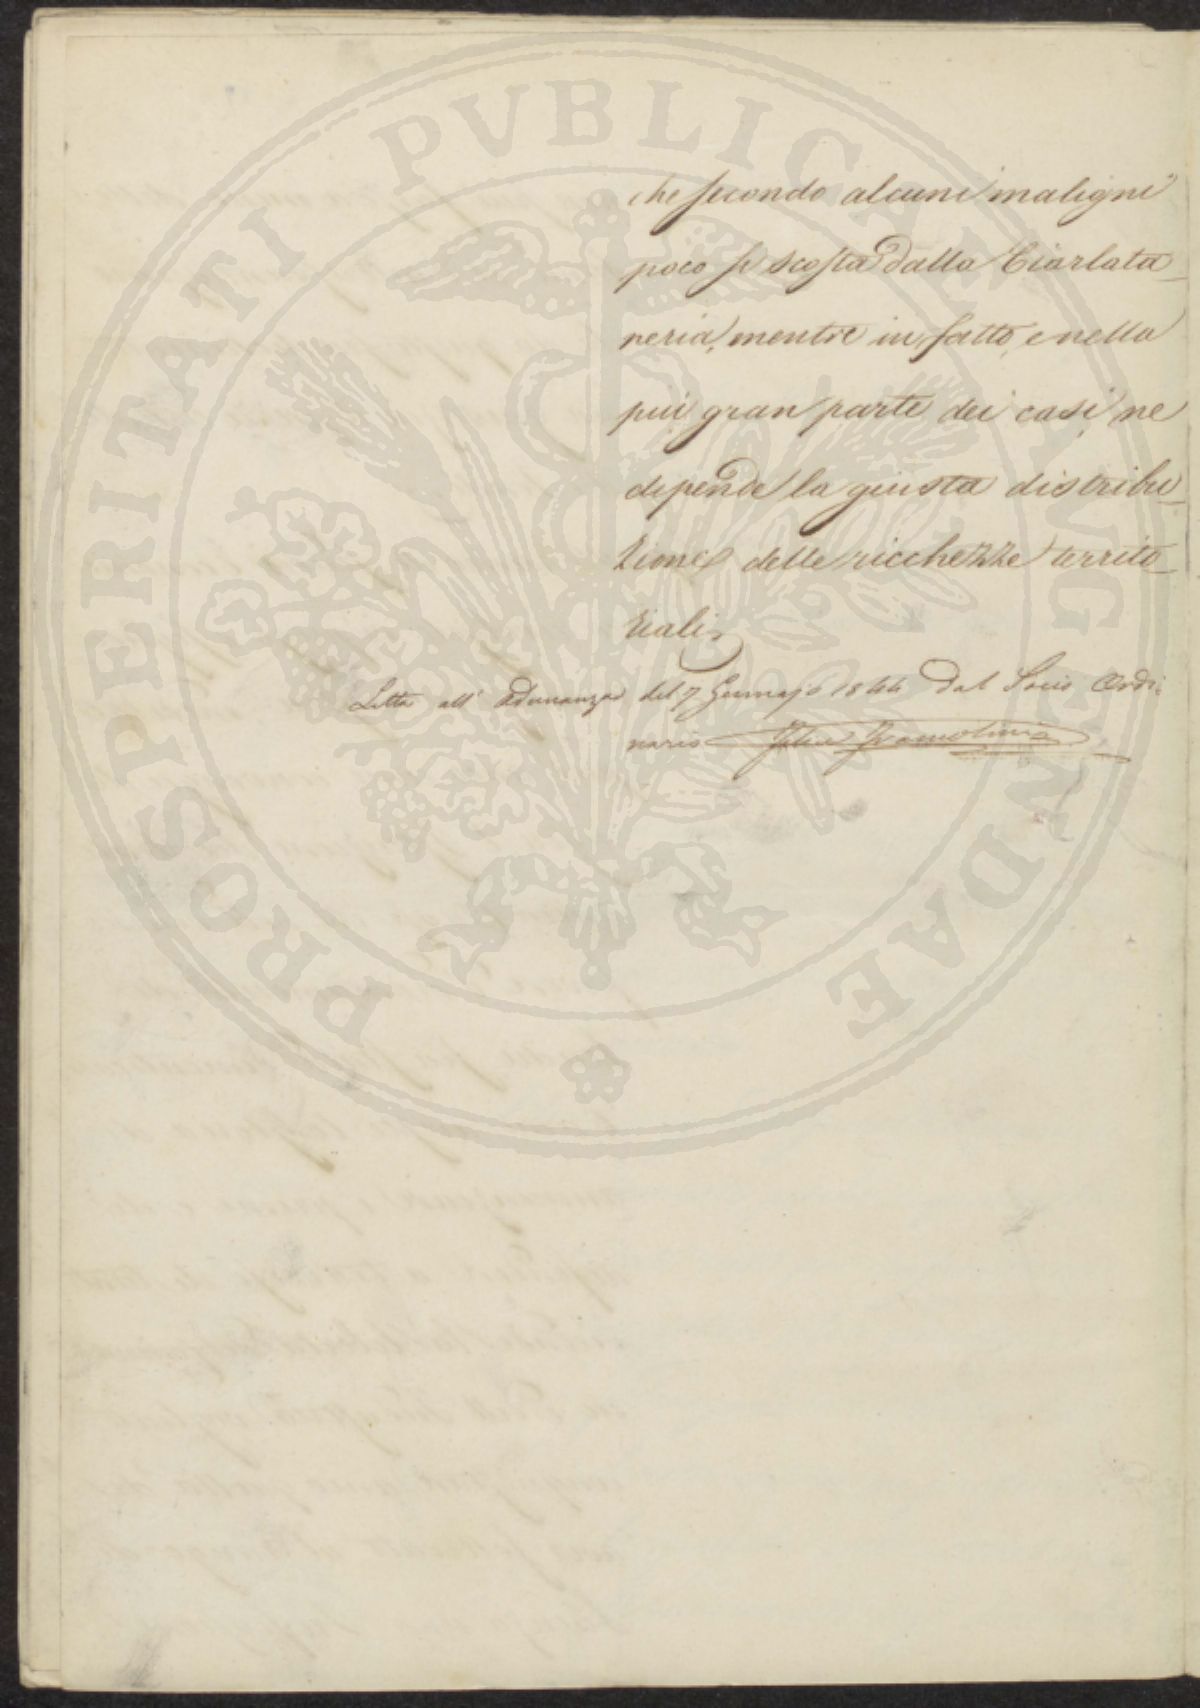 che secondo alcuni maligni
poco si scosta dalla Ciarlata_
neria, mentre in fatto, e nella
più gran parte dei casi ne
depende la giusta distribu_
zione delle ricchezze territo_
riali,
Letta all' Adunanza del 7 Gennajo 1844 Dal Socio Ordi_
nario Felice Francolini
PROSPERITATI PVBLICAE AVGENDAE